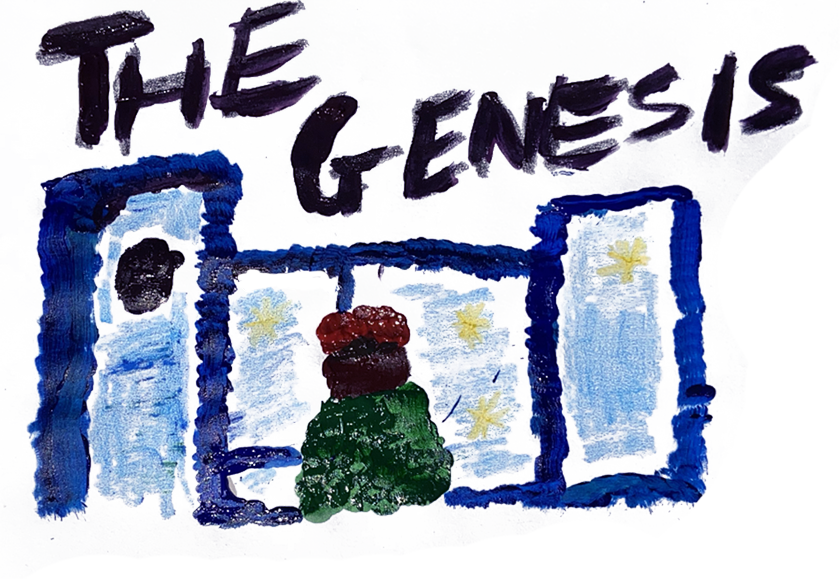 THE
GENESIS